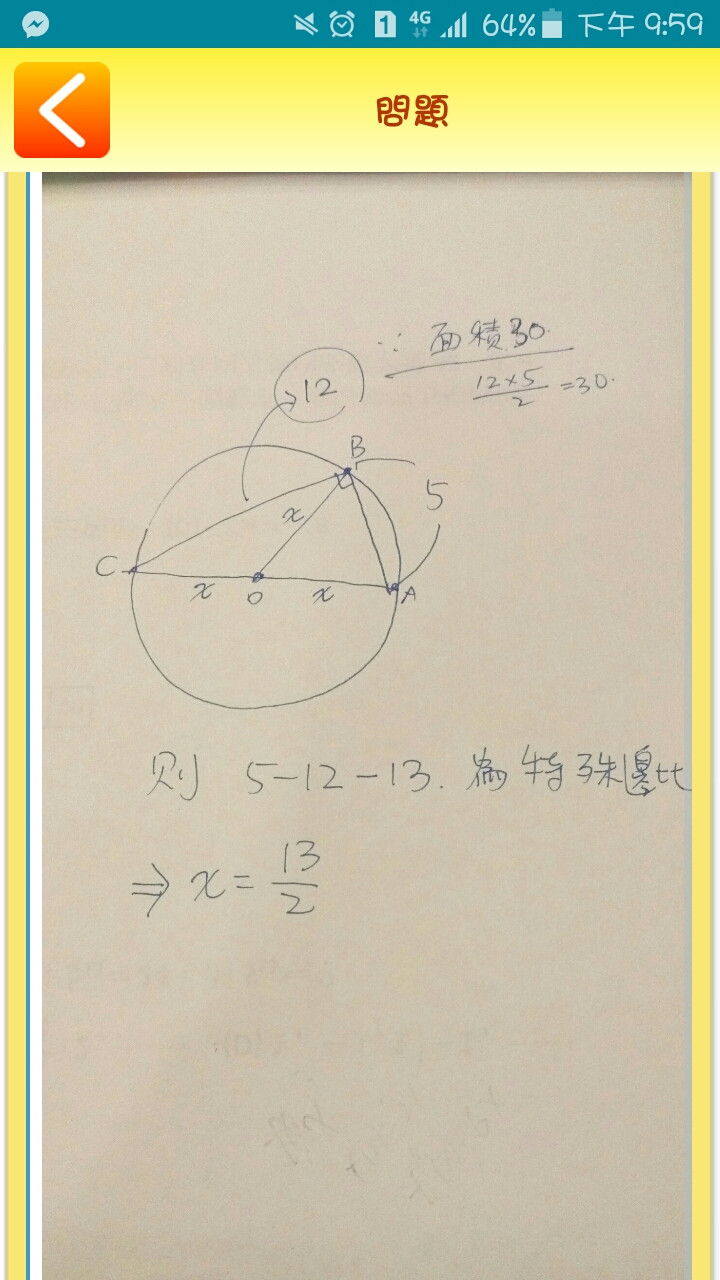 1 4G 64% 下午 9:59
問題
∵ 面積30.
12×5/2 =30.
12
B
5
x
C
x O x A
則 5-12-13. 為特殊邊比
⇒ x = 13/2